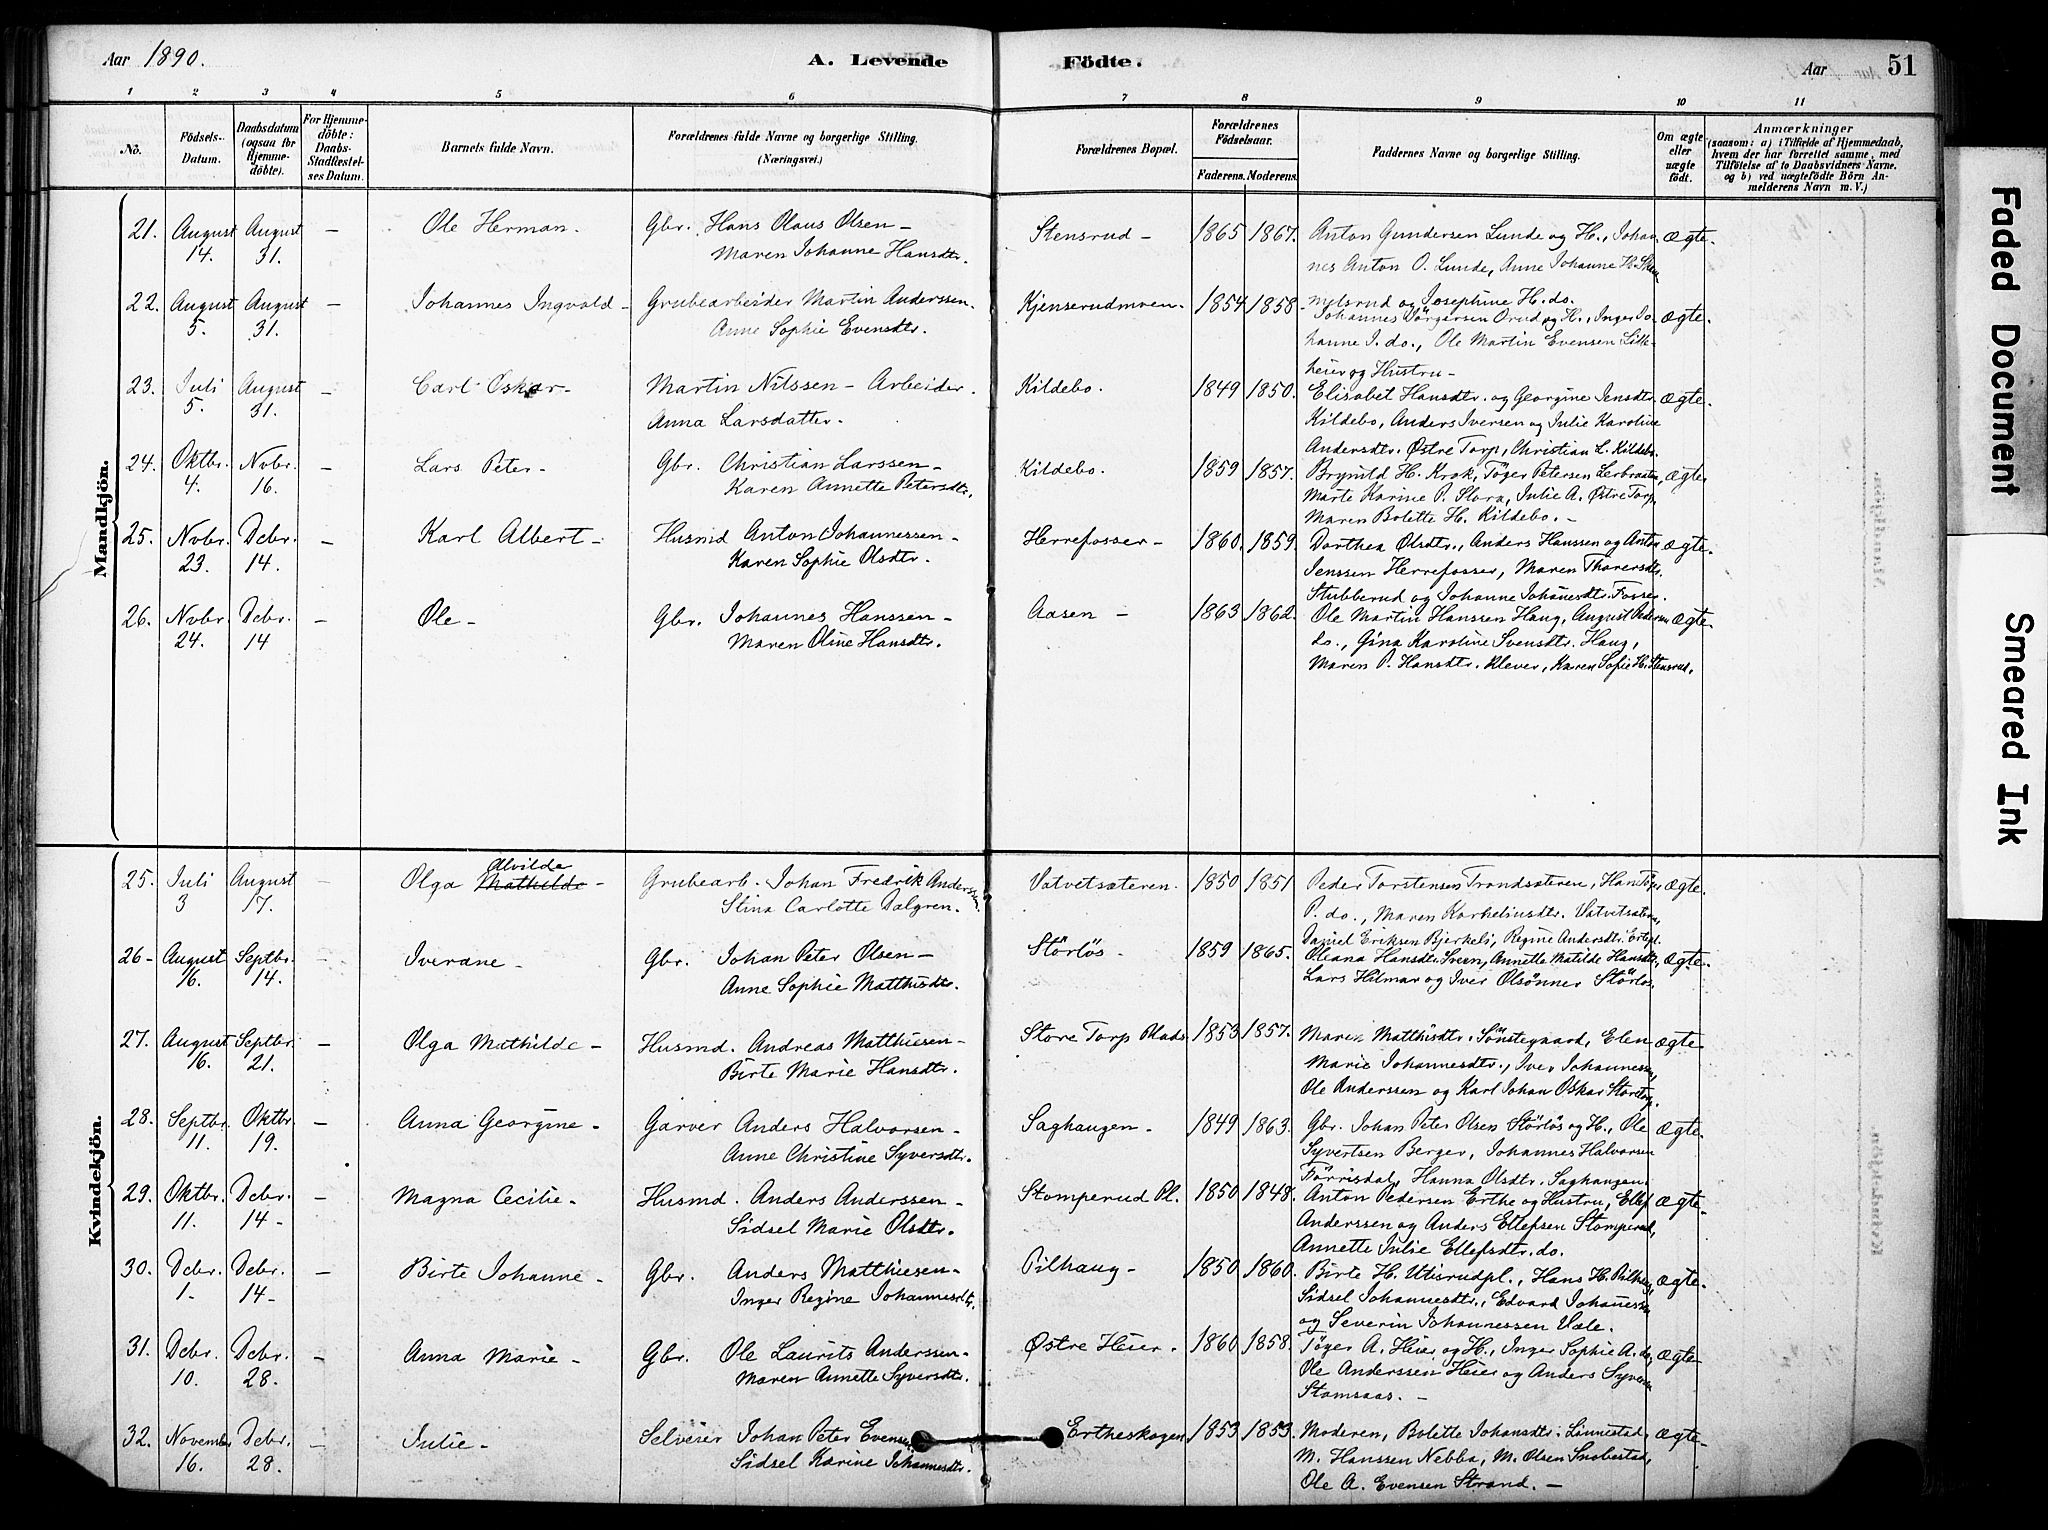 Aar 1890.
A. Levende Födte.
Aar
51
1 2 3 4 5 6 7 8 9 10 11
No.
Födsels-Datum.
Daabsdatum (ogsaa for Hjemmedöbte).
For Hjemmedöbte: Daabs-Stadfæstelses Datum.
Barnets fulde Navn.
Forældrenes fulde Navne og borgerlige Stilling. (Næringsvei.)
Forældrenes Bopæl.
Forældrenes Födselsaar.
Faderens. Moderens.
Faddernes Navne og borgerlige Stilling.
Om ægte eller uægte födt.
Anmærkninger (saasom: a) i Tilfælde af Hjemmedaab, hvem der har forrettet samme, med Tilföielse af to Daabsvidners Navne. og b) ved uægtefödte Börn Anmelderens Navn m. V.)
Mandkjön.
21. August 14. August 31. – Ole Herman. Gbr. Hans Olaus Olsen – Stensrud – 1865 1867. Anton Gundersen Lunde og H., Johan ægte.
Maren Johanne Hansdtr. nes Anton O. Lunde, Anne Johanne H.
22. August 5. August 31. – Johannes Ingvald – Grubearbeider Martin Anderssen. Kjenserudmoen. 1854 1858. melsrud og Josephine H. do. ægte.
Anne Sophie Evensdtr. Johannes Jörgersen Orud og H., Inger Jo
hanne J. do., Ole Martin Evensen Lille-
heier og Hustru –
23. Juli 5. August 31. – Carl Oskar – Martin Nilssen – Arbeider. Kildebo. 1849 1850. Elisabet Hansdtr. og Georgine Jensdtr. ægte.
Anna Larsdatter. Kildebo, Anders Iversen og Julie Karoline
Andersdtr. Østre Torp, Christian L. Kildebo.
24. Oktbr. 4. Novbr. 16. – Lars Peter – Gbr. Christian Larssen – Kildebo. 1859 1857. Brynild H. Krok, Töger Petersen Lerbraaten, ægte
Karen Annette Petersdtr. Marte Karine P. Slora, Julie A. Østre Torp,
Maren Bolette H. Kildebo. –
25. Novbr. 23. Dcbr. 14. – Karl Albert – Husmd Anton Johannessen – Herrefosser – 1860. 1859. Dorthea Olsdtr., Anders Hanssen og Anton ægte.
Karen Sophie Olsdtr. Jenssen Herrefosser, Maren Thoresdtr.
Stubberud og Johanne Johanesdtr. Fosser.
26. Novbr. 24. Dcbr. 14 – Ole – Gbr. Johannes Hanssen – Aasen – 1863 1862. Ole Martin Hanssen Haug, August Pedersen ægte.
Maren Oline Hansdtr. do., Gina Karoline Svensdtr. Haug,
Maren P. Hansdtr. Klever, Karen Sofie H. Stensrud.
Kvindekjön.
25. Juli 3 August 17. – Olga Mathilde Alvilde – Grubearb. Johan Fredrik Anderssen. Vatvetsæteren. 1850 1851 Peder Torstensen Trandsæteren, Hans ægte.
Stina Carlotte Dalgren. P. do., Maren Karheliusdtr. Vatvetsæteren,
Daniel Eriksen Bjerkeli, Regine Andersdtr.
26 – August 16. Septbr. 14. – Iverane – Gbr. Johan Peter Olsen – Störlös – 1859 1865. Oleana Hansdtr. Sveen, Annette Matilde Hansdtr., ægte.
Anne Sophie Matthisdtr. Lars Hilmar og Iver Olsönner Störlös.
27. August 16. Septbr. 21. – Olga Mathilde – Husmd. Andreas Matthiesen – Store Torp Plads 1853 1857. Maren Matthisdtr. Sönstegaard, Elen ægte.
Birte Marie Hansdtr. Marie Johannesdtr., Iver Johannessen,
Ole Anderssen og Karl Johan Oskar Storetorp.
28. Septbr. 11. Oktbr. 19. – Anna Georgine – Garver Anders Halvorsen – Saghaugen – 1849 1863. Gbr. Johan Peter Olsen Störlös og H., Ole ægte.
Anne Christine Syversdtr. Syvertsen Berger, Johannes Halvorsen
Förrisdal, Hanna Olsdtr. Saghaugen.
29. Oktbr. 11. Dcbr. 14 – – Magna Cecilie – Husmd. Anders Anderssen – Stomperud Pl. 1850 1848. Anton Pedersen Erthe og Hustru, Ellef ægte.
Sidsel Marie Olsdtr. Anderssen og Anders Ellefsen Stomperud,
Annette Julie Ellefsdtr. do.
30. Dcbr. 1 – Dcbr. 14 – – Birte Johanne – Gbr. Anders Matthiesen – Pilhaug – 1850 1860. Birte H. Utisrudpl., Hans H. Pilhaug, ægte.
Inger Regine Johannesdtr. Sidsel Johannesdtr., Edvard Johanessen
og Severin Johannessen Væle.
31. Dcbr. 10. Dcbr. 28. – Anna Marie – Gbr. Ole Laurits Anderssen – Østre Heier – 1860 1858. Töger A. Heier og H., Inger Sophie A. do., ægte
Maren Annette Syversdtr. Ole Anderssen Heier og Anders Syversen
Stomsaas. –
32. November 16. Dcbr. 28. – Julie – Selveier Johan Peter Evensen Ertheskogen 1853 1853. Moderen, Bolette Johansdtr. Lönnestad, ægte –
Sidsel Karine Johannesdtr. M. Hanssen Nebba, M. Olsen Snobestad,
Ole A. Evensen Strand. –
Faded Document
Smeared Ink